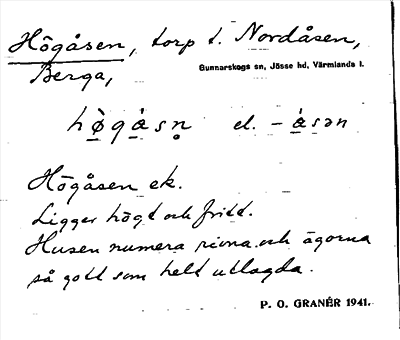 Högåsen, torp t. Nordåsen,
Berga,
Gunnarskogs sn, Jösse hd, Värmlands l.
el.
Högåsen ek.
Ligger högt och fritt.
Husen numera rivna och ägorna
så gott som helt utlagda.
P. O. GRANÉR 1941.